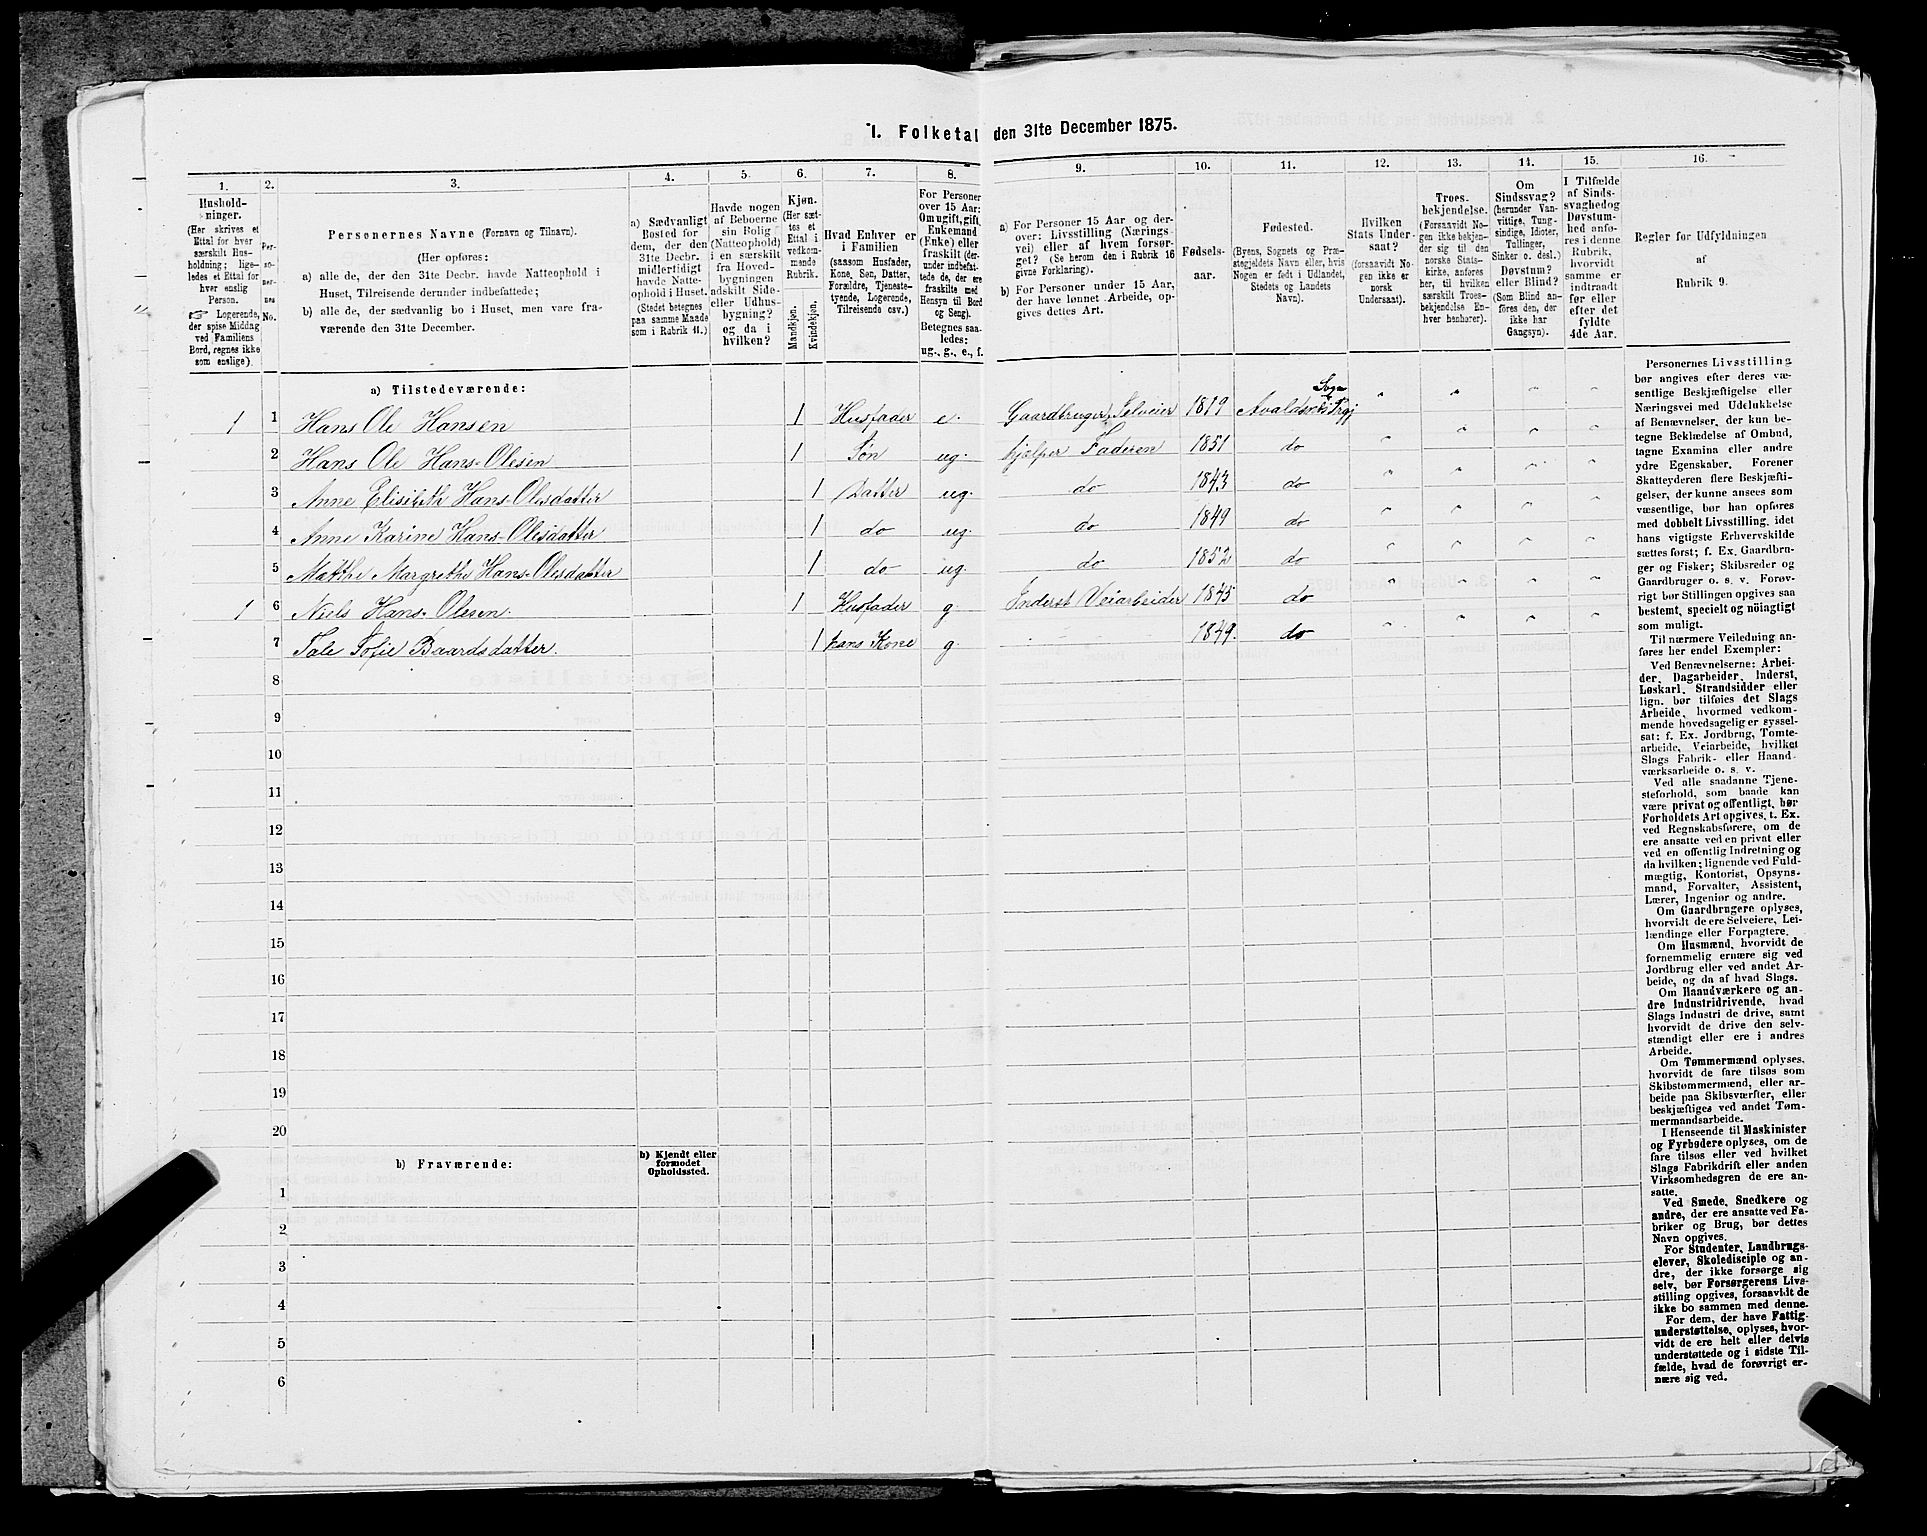 1. Folketal den 31te December 1875.
1.
2.
3.
4.
5.
6.
7.
8.
9.
10.
11.
12.
13.
14.
15.
16.
Hushold-
ninger.
(Her skrives et
Ettal for hver
særskilt Hus-
holdning; lige-
ledes et Ettal for
hver enslig
Person.
☞ Logerende,
der spise Middag
ved Familiens
Bord, regnes ikke
som enslige).
Per-
so-
ner-
nes
No.
Personernes Navne (Fornavn og Tilnavn).
(Her opføres:
a) alle de, der den 31te Decbr. havde Natteophold i
Huset, Tilreisende derunder indbefattede;
b) alle de, der sædvanlig bo i Huset, men vare fra-
værende den 31te December.
a) Sædvanligt
Bosted for
dem, der den
31te Decbr.
midlertidigt
havde Natte-
ophold i Huset.
(Stedet betegnes
paa samme Maade
som i Rubrik 11.)
Havde nogen
af Beboerne
sin Bolig
(Natteophold)
i en særskilt
fra Hoved-
bygningen
adskilt Side-
eller Udhus-
bygning?
og da i
hvilken?
Kjøn.
(Her sæt-
tes et
Ettal i
vedkom-
mende
Rubrik.
Mandkjøn.
Kvindekjøn.
Hvad Enhver er
i Familien
(saasom Husfader,
Kone, Søn, Datter,
Forældre, Tjeneste-
tyende, Logerende,
Tilreisende osv.)
For Personer
over 15 Aar:
Om ugift, gift,
Enkemand
(Enke) eller
fraskilt (der-
under indbefat-
tede de, der ere
fraskilte med
Hensyn til Bord
og Seng).
Betegnes saa-
ledes:
ug., g., e., f.
a) For Personer 15 Aar og der-
over: Livsstilling (Nærings-
vei) eller af hvem forsør-
get? (Se herom den i Rubrik 16
givne Forklaring).
b) For Personer under 15 Aar,
der have lønnet Arbeide, op-
gives dettes Art.
Fødsels-
aar.
Fødested.
(Byens, Sognets og Præ-
stegjeldets Navn eller, hvis
Nogen er født i Udlandet,
Stedets og Landets
Navn).
Hvilken
Stats Under-
saat?
(forsaavidt No-
gen ikke er
norsk
Undersaat).
Troes-
bekjendelse.
(Forsaavidt No-
gen ikke bekjen-
der sig til den
norske Stats-
kirke, anføres
her, til hvilken
særskilt Troes-
bekjendelse En-
hver henhører).
Om
Sindssvag?
(herunder Van-
vittige, Tung-
sindige, Idioter,
Tullinger,
Sinker o. desl.)
Døvstum?
eller Blind?
(Som Blind an-
føres den, der
ikke har
Gangsyn).
I Tilfælde
af Sinds-
svaghed og
Døvstum-
hed anfø-
res i denne
Rubrik,
hvorvidt
samme er
indtraadt
før eller
efter det
fyldte
4de Aar.
Regler for Udfyldningen
af
Rubrik 9.
a) Tilstedeværende:
1 1 Hans Ole Hansen 1 Husfader e. Gaardbruger, Selveier 1819 Avaldsnes Sogn og Prgj " " " "
2 Hans Ole Hans-Olesen 1 Søn ug. hjælper Faderen 1851 do " " " "
3 Anne Elisibeth Hans-Olesdatter 1 Datter ug. do 1843 do " " " "
4 Anne Karine Hans-Olesdatter 1 do ug. do 1849 do " " " "
5 Matthe Margrethe Hans-Olesdatter 1 do ug. do 1852 do " " " "
1 6 Niels Hans-Olesen. 1 Husfader g. Inderst Veiarbeider 1845 do " " " "
7 Tale Sofie Baardsdatter. 1 hans Kone g. 1849. do " " " "
8
9
10
11
12
13
14
15
16
17
18
19
20
b) Fraværende:
b) Kjendt eller
formodet
Opholdssted.
1
2
3
4
5
6
Personernes Livsstilling
bør angives efter deres væ-
sentlige Beskjæftigelse eller
Næringsvei med Udelukkelse
af Benævnelser, der kun be-
tegne Beklædelse af Ombud,
tagne Examina eller andre
ydre Egenskaber. Forener
Skatteyderen flere Beskjæfti-
gelser, der kunne ansees som
væsentlige, bør han opføres
med dobbelt Livsstilling, idet
hans vigtigste Erhvervskilde
sættes først; f. Ex. Gaardbru-
ger og Fisker; Skibsreder og
Gaardbruger o. s. v. Forøv-
rigt bør Stillingen opgives saa
bestemt, specielt og nøiagtigt
som muligt.
Til nærmere Veiledning an-
føres her endel Exempler:
Ved Benævnelserne: Arbei-
der, Dagarbeider, Inderst,
Løskarl, Strandsidder eller
lign. bør tilføies det Slags
Arbeide, hvormed vedkom-
mende hovedsagelig er syssel-
sat; f. Ex. Jordbrug, Tomte-
arbeide, Veiarbeide, hvilket
Slags Fabrik- eller Haand-
værksarbeide o. s. v.
Ved alle saadanne Tjene-
steforhold, som baade kan
være privat og offentligt, bør
Forholdets Art opgives, t. Ex.
ved Regnskabsførere, om de
ere ansatte ved en privat eller
ved en offentlig Indretning og
da hvilken; lignende ved Fuld-
mægtig, Kontorist, Opsyns-
mand, Forvalter, Assistent,
Lærer, Ingeniør og andre.
Om Gaardbrugere oplyses,
hvorvidt de ere Selveiere, Lei-
lændinge eller Forpagtere.
Om Husmænd, hvorvidt de
fornemmelig ernære sig ved
Jordbrug eller ved andet Ar-
beide, og da af hvad Slags.
Om Haandværkere og an-
dre Industridrivende, hvad
Slags Industri de drive, samt
hvorvidt de drive den selv-
stændigt eller ere i andres
Arbeide.
Om Tømmermænd oplyses,
hvorvidt de fare tilsøs som
Skibstømmermænd, eller ar-
beide paa Skibsværfter, eller
beskjæftiges ved andet Tøm-
mermandsarbeide.
I Henseende til Maskinister
og Fyrbødere oplyses, om de
fare tilsøs eller ved hvilket
Slags Fabrikdrift eller anden
Virksomhedsgren de ere an-
satte.
Ved Smede, Snedkere og
andre, der ere ansatte ved Fa-
briker og Brug, bør dettes
Navn opgives.
For Studenter, Landbrugs-
elever, Skoledisciple og an-
dre, der ikke forsørge sig
selv, bør Forsørgerens Livs-
stilling opgives, forsaavidt de
ikke bo sammen med denne.
For dem, der have Fattig-
understøttelse, oplyses, hvor-
vidt de ere helt eller delvis
understøttede og i sidste Til-
fælde, hvad de forøvrigt er-
nære sig ved.